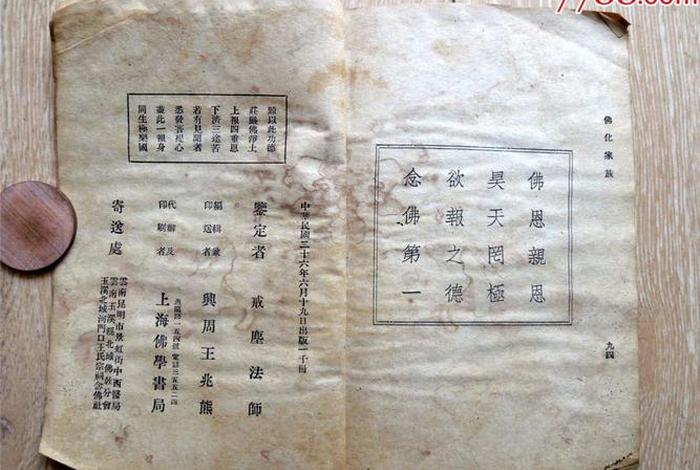 佛化家族
九四
佛恩親恩
昊天罔極
欲報之德
念佛第一
願以此功德
莊嚴佛淨土
上報四重恩
下濟三途苦
若有見聞者
悉發菩提心
盡此一報身
同生極樂國
中華民國二十六年六月十九日出版一千冊
鑒定者 戒塵法師
編輯兼印送者 興周王兆熊
代辦及印刷者 上海佛學書局
路一五四號 電話三五五二四
寄送處
雲南昆明市景虹街中西醫局
雲南玉溪縣北城佛教分會
玉溪北城河門口王氏宗祠念佛社